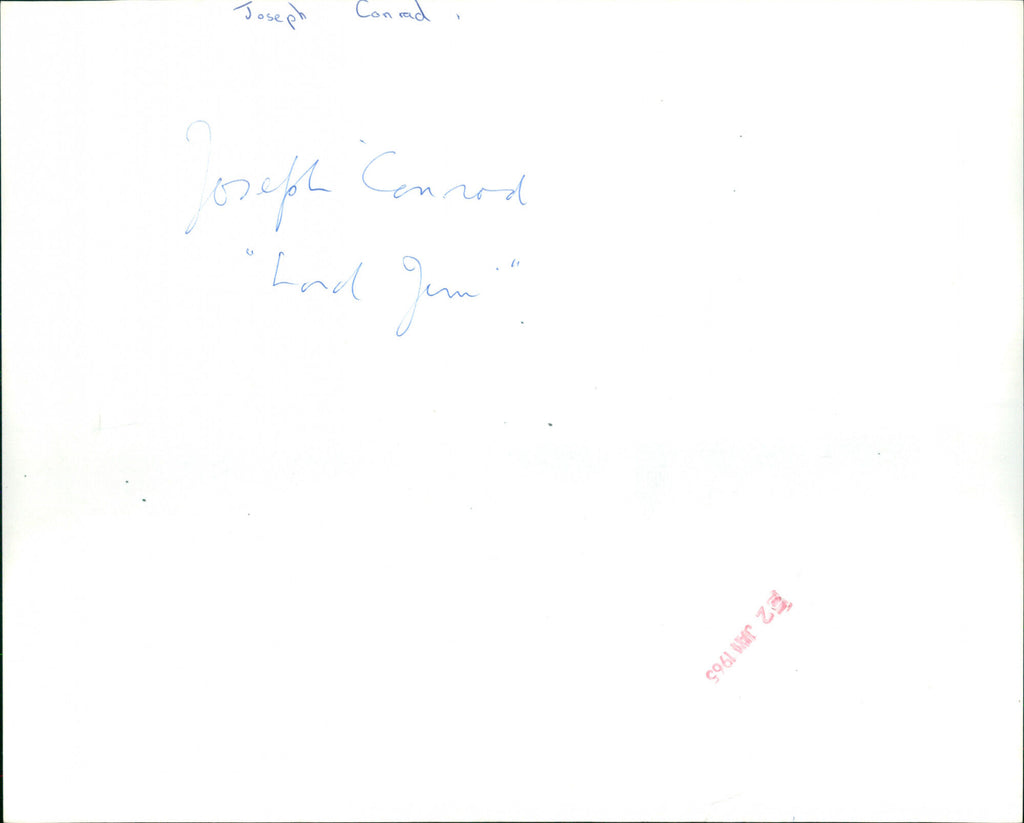 Joseph Conrad.
Joseph Conrad
"Lord Jim"
22 JAN 1965